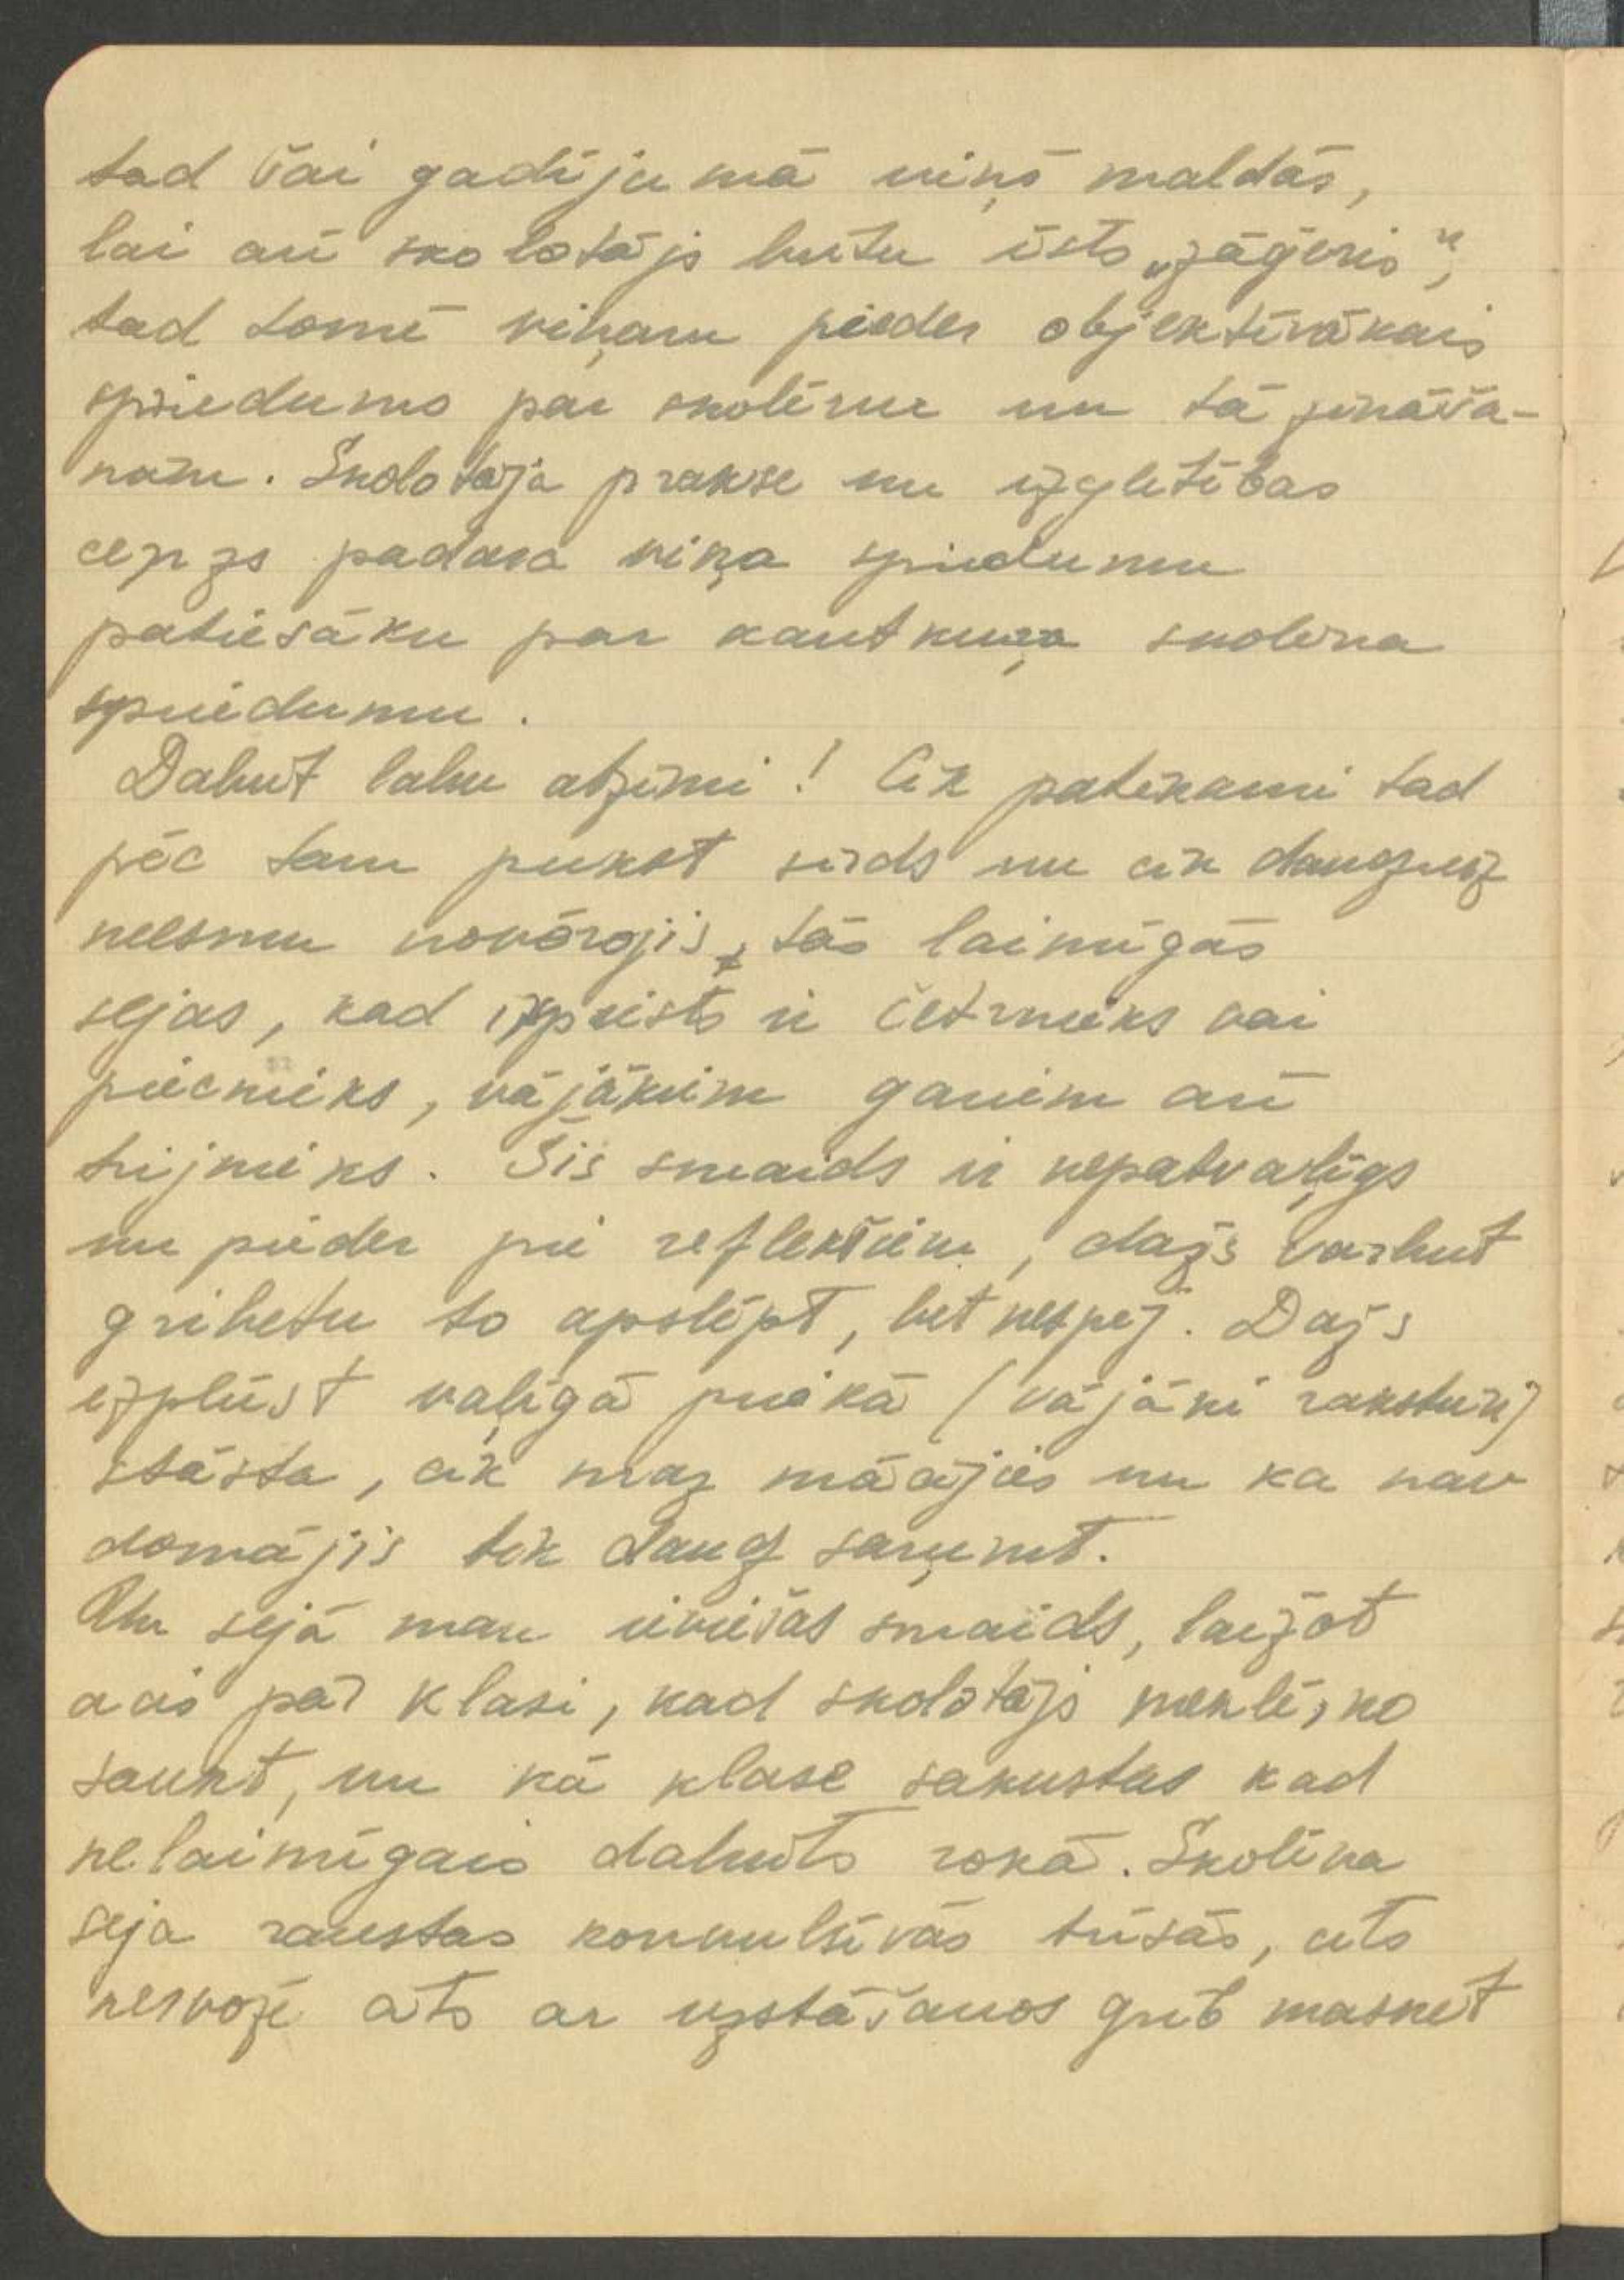 tad šai gadījumā viņš maldās,
lai arī skolotājs butu īsts „zāģeris",
tad tomē viņam pieder objektīvākais
spriedums par skolēnu un tā zināša-
nām. Skolotāja prakse un izglītības
cenzs padara viņa spriedumu
patiesāku par kautkuŗa skolēna
spriedumu.
Dabut labu atzīmi! Cik patīkami tad
pēc tam pukst sirds un cik daudzreiz
neesmu novērojis, tās laimīgās
sejas, kad izpūsts ir četrnieks vai
piecnieks, vājākiem gariem arī
trijnieks. Šis smaids ir nepatvaļīgs
un pieder pie reflekšiem, dažs varbut
gribetu to apslēpt, bet nespēj. Dažs
izplūst vaļīgā priekā (vājāki raksturi)
stāsta, cik maz mācījies un ka nav
domājis tik daudz saņemt.
Un sejā man ieviešas smaids, laižot
acis pār klasi, kad skolotājs meklē, ko
saukt, un kā klase sakustas kad
nelaimīgais dabūts rokā. Skolēna
seja raustas konvulsīvās trīsās, cits
nervozē cits ar uzstāšanos grib maskēt